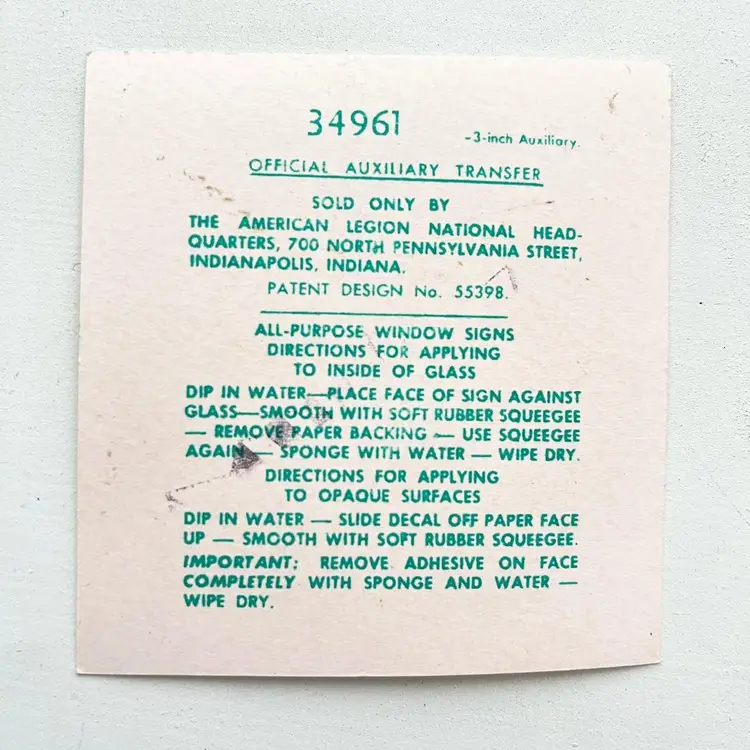 34961
-3-inch Auxiliary.
OFFICIAL AUXILIARY TRANSFER
SOLD ONLY BY
THE AMERICAN LEGION NATIONAL HEAD-
QUARTERS, 700 NORTH PENNSYLVANIA STREET,
INDIANAPOLIS, INDIANA.
PATENT DESIGN No. 55398.
ALL-PURPOSE WINDOW SIGNS
DIRECTIONS FOR APPLYING
TO INSIDE OF GLASS
DIP IN WATER—PLACE FACE OF SIGN AGAINST
GLASS—SMOOTH WITH SOFT RUBBER SQUEEGEE
— REMOVE PAPER BACKING — USE SQUEEGEE
AGAIN — SPONGE WITH WATER — WIPE DRY.
DIRECTIONS FOR APPLYING
TO OPAQUE SURFACES
DIP IN WATER — SLIDE DECAL OFF PAPER FACE
UP — SMOOTH WITH SOFT RUBBER SQUEEGEE.
IMPORTANT: REMOVE ADHESIVE ON FACE
COMPLETELY WITH SPONGE AND WATER —
WIPE DRY.